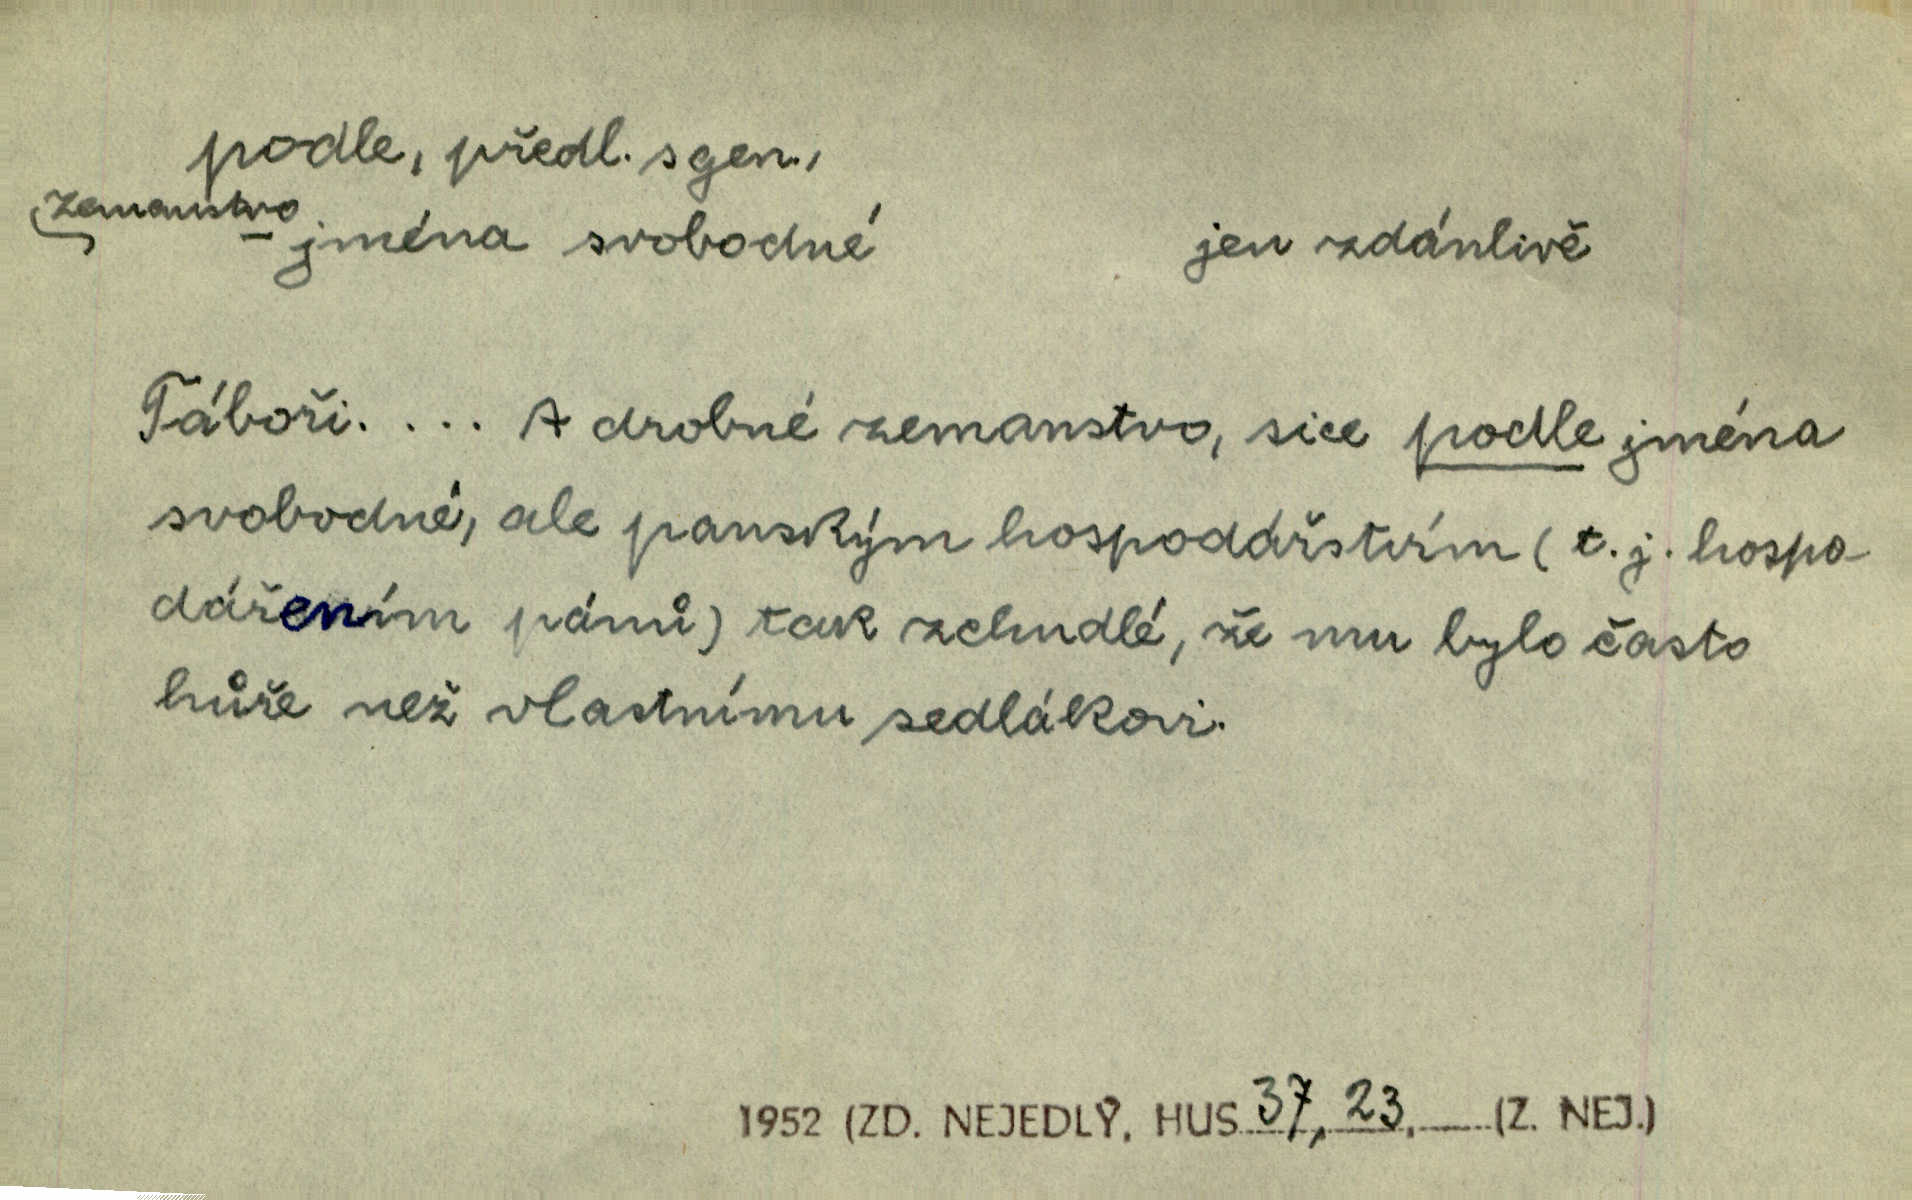 podle, předl. s gen.,
zemanstvo
– jména svobodné jen zdánlivě
Táboři. . . . A drobné zemanstvo, sice podle jména
svobodné, ale panským hospodářstvím (t. j. hospo-
dářením pánů) tak zchudlé, že mu bylo často
hůře než vlastnímu sedlákovi.
1952 (ZD. NEJEDLÝ, HUS 37, 23, (Z. NEJ.)